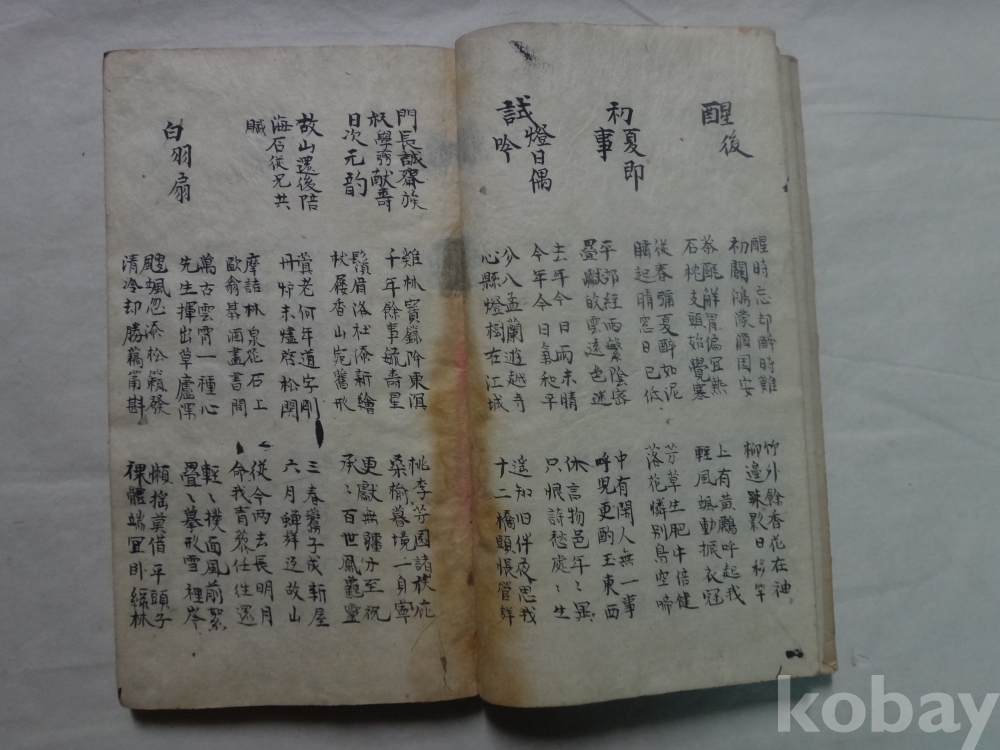 醒後
醒時忘却醉時難
初闢鴻濛酒国安
茶醒解胃偏宜熟
石枕支頭始覺寒
竹外餘香花在袖
柳邊踈影日移竿
上有黃鸝呼起我
輕風飄動振衣冠
初夏即
事
從春彌夏醉如泥
睡起晴窓日已低
平郊經雨繁陰密
疊巘收雲遠也迷
芳草生肥牛倍健
落花憐別鳥空啼
中有閒人無一事
呼児更酌玉東西
試燈日偶
吟
去年今日雨未晴
今年今日氣和平
分八盂蘭遊越寺
心縣燈樹在江城
休言物色年〻異
只恨詩愁處〻生
遥知旧伴應思我
十二橋頭悵管絃
門長誠齋族
叔學獻壽
日次元韵
雞林寳籙降東溟
千年餘事毓壽星
鬚眉洛社添新繪
杖屨香山宛舊形
桃李芳園諸族庇
桑榆暮境一身寧
更獻無疆方至祝
承〻百世鳳龜靈
故山還後陪
海石従兄共
賦
老何年道字剛
丹炉未燼啓松関
摩詰林泉花石上
歐翁棊酒畫書間
三春子成新屋
六月蟬鮮造故山
従今兩去長明月
命我青藜任往還
白羽扇
萬古雲霄一種心
先生揮出草廬深
颼颯忽添松籟發
清冷却勝藕莆斟
輕〻撲面風前絮
疊〻摹形雪裡岑
懶搖莫借平頭子
裸體端宜卧綠林
kobay